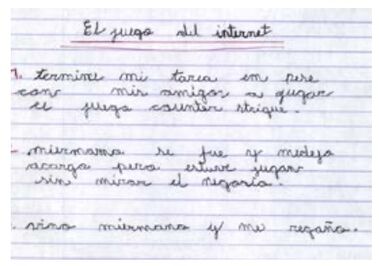 El juego del internet
1. termine mi tarea em pese
con mis amigos a jugar
el juego counter strique.
miermana se fue y medejo
acargo pero estuve jugar
sin mirar el negosio.
. vino miermano y me regaño.